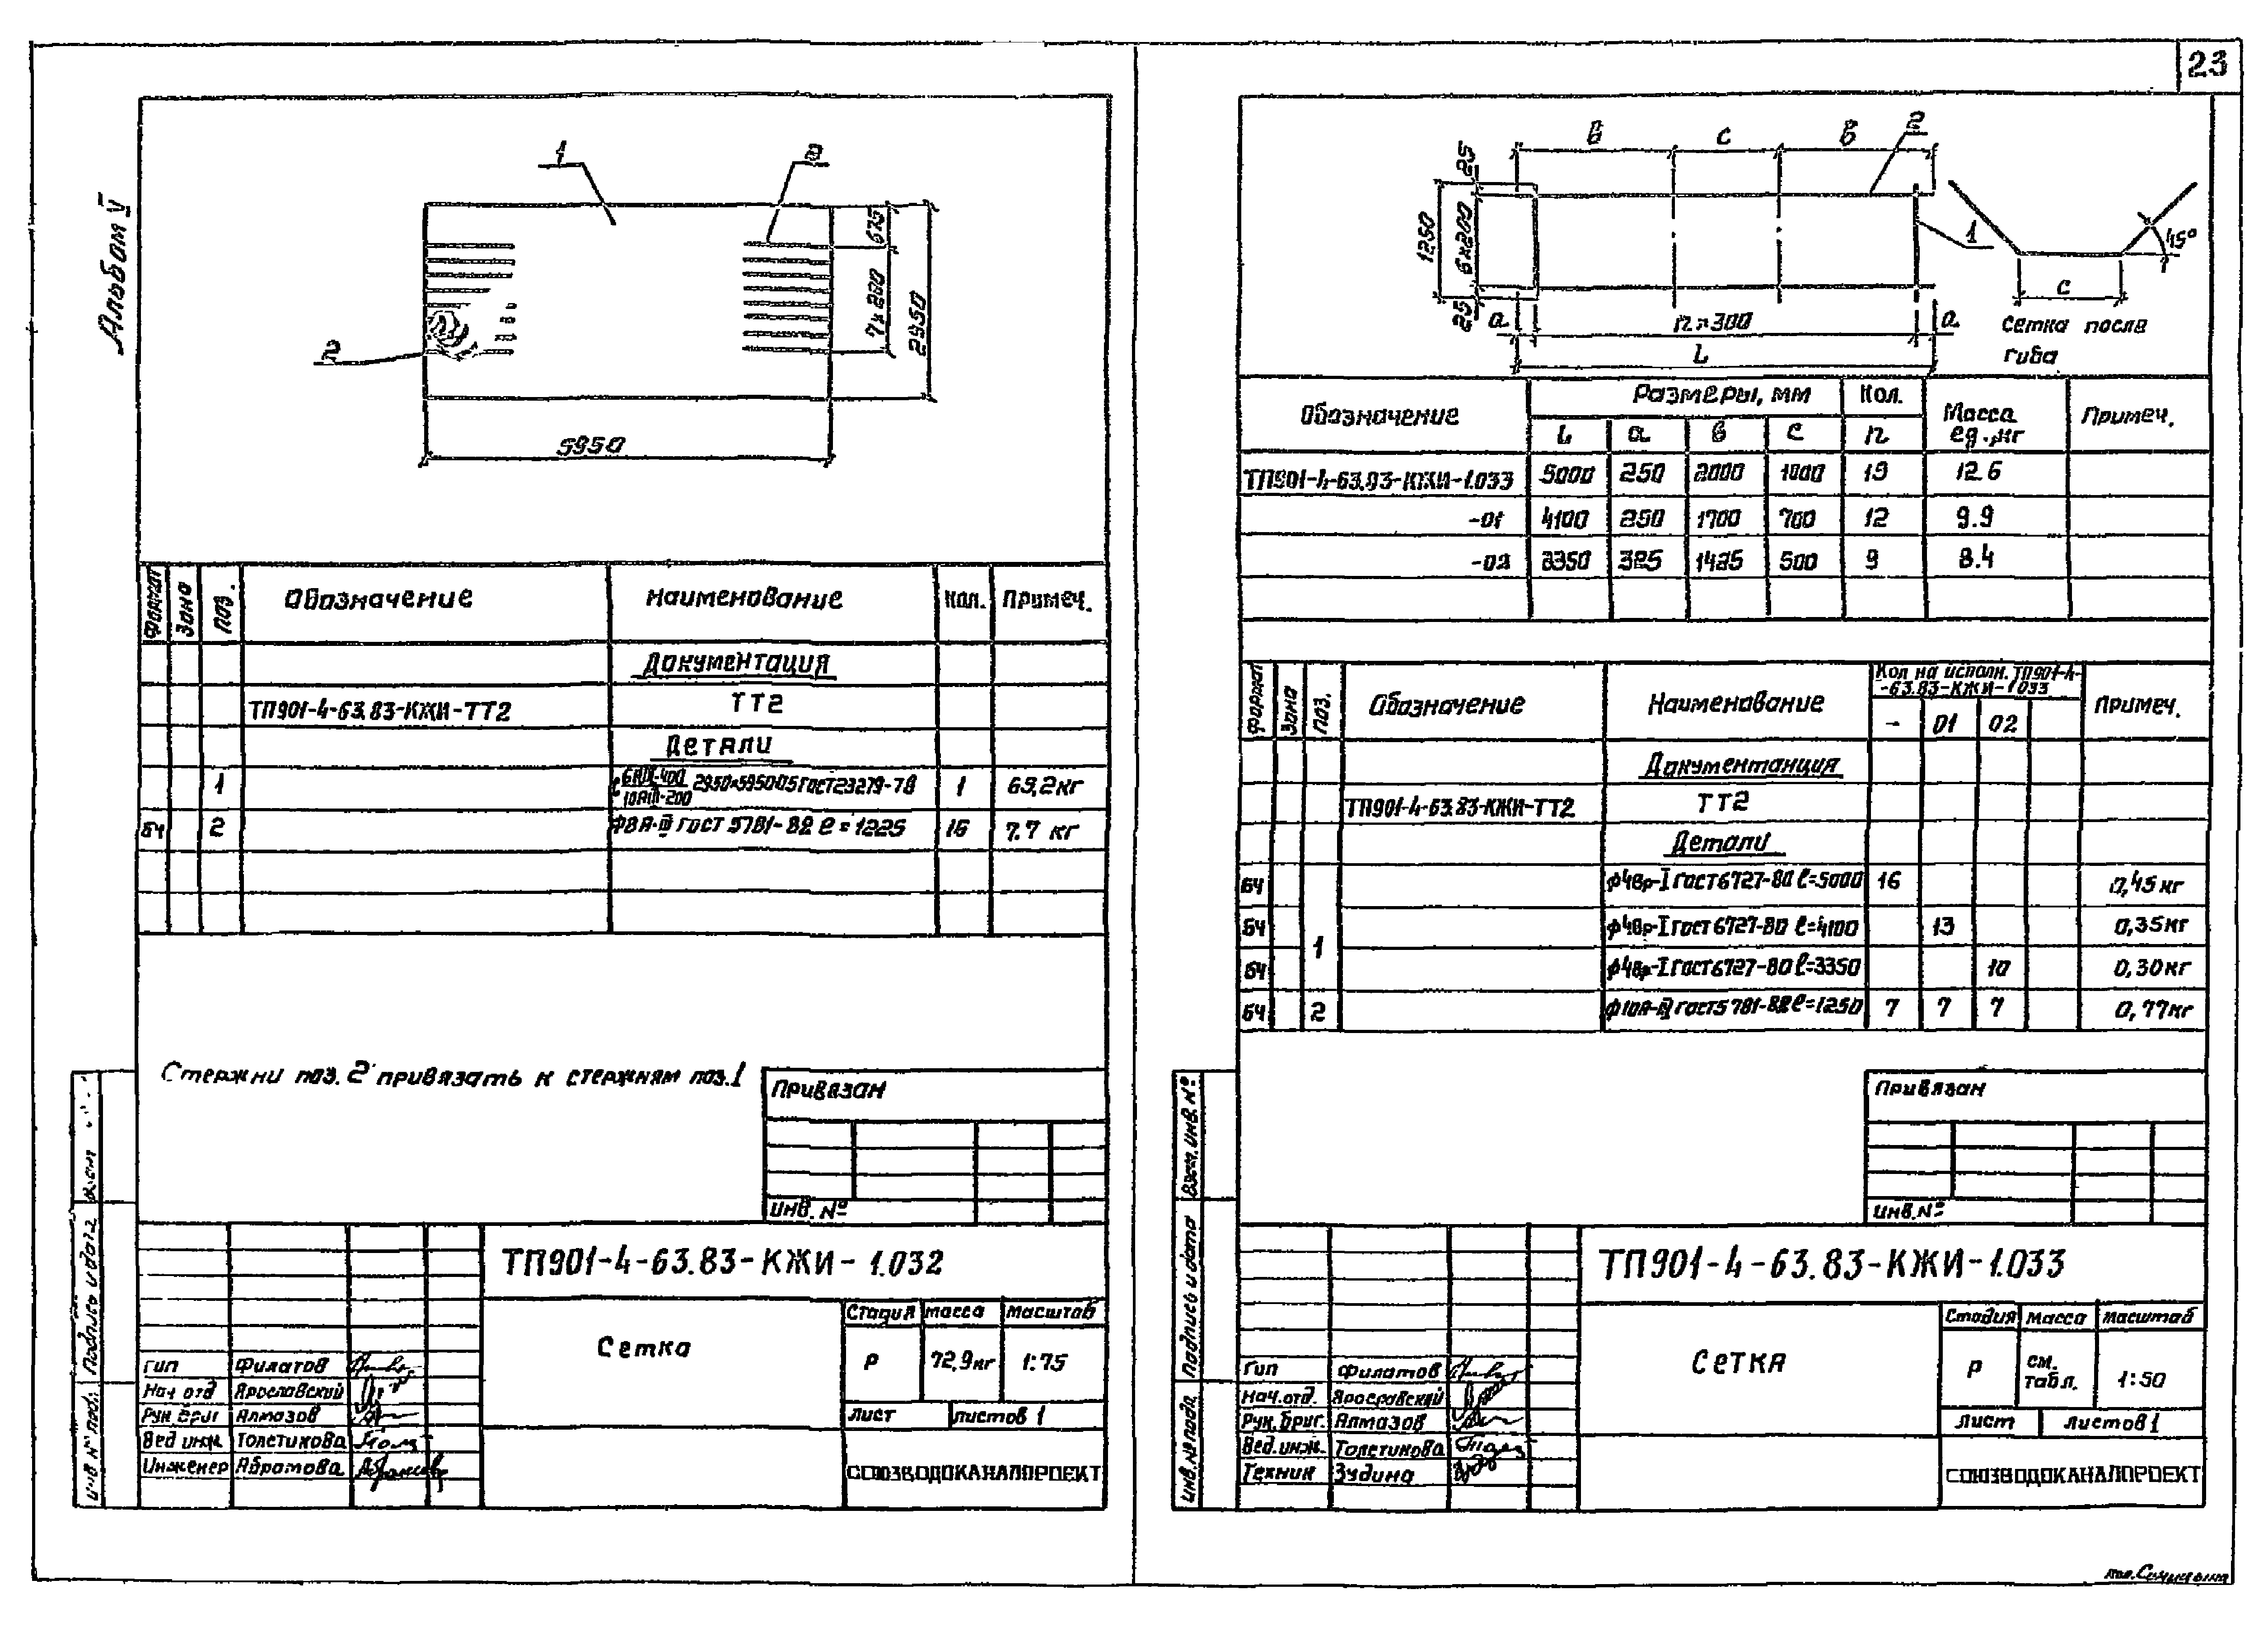 23
Альбом V
1
2
675
7×200
2950
2
5950
Формат Зона Поз. Обозначение Наименование Кол. Примеч.
Документация
ТП901-4-63.83-КЖИ-ТТ2 ТТ2
Детали
1 2950×5950 ГОСТ23279-78 1
БЧ 2 Ф8А-III ГОСТ 5781-82 ℓ=1225 16 7.7 кг
Стержни поз. 2 привязать к стержням поз.1
Привязан
Инв. №
ТП901-4-63.83-КЖИ-1.032
Сетка
Стадия масса масштаб
Р 72,9кг 1:75
лист листов 1
СОЮЗВОДОКАНАЛПРОЕКТ
Гип Филатов
Нач отд Ярославский
Рук. бриг Алмазов
Вед инж. Толстикова
Инженер Абрамова
Подпись и дата
Инв № подл.
в с в 2
25
1250
6×200
25
1
45°
с
а n×300 а
L
Сетка после
гиба
Обозначение Размеры, мм Кол. Масса ед.,кг Примеч.
L а в с n
ТП901-4-63.83-КЖИ-1.033 5000 250 2000 1000 15 12.6
-01 4100 250 1700 700 12 9.9
-02 3350 325 1425 500 9 8.4
Формат Зона Поз. Обозначение Наименование Кол на исполн. ТП901-4-
-63.83-КЖИ-1.033 Примеч.
- 01 02
Документанция
ТП901-4-63.83-КЖИ-ТТ2 ТТ2
Детали
БЧ ф4Вр-I ГОСТ6727-80 ℓ=5000 16 0,45кг
БЧ ф4Вр-I ГОСТ6727-80 ℓ=4100 13 0,35кг
1
БЧ ф4Вр-I ГОСТ6727-80 ℓ=3350 10 0,30кг
БЧ 2 ф10А-III ГОСТ5781-82 ℓ=1250 7 7 7 0,77кг
Привязан
Инв.№
ТП901-4-63.83-КЖИ-1.033
Сетка
Стадия масса масштаб
Р см. табл. 1:50
лист листов 1
СОЮЗВОДОКАНАЛПРОЕКТ
Гип Филатов
Нач.отд. Ярославский
Рук. бриг. Алмазов
Вед.инж. Толстикова
Техник Зудина
Взам. инв. №
Подпись и дата
Инв. № подл.